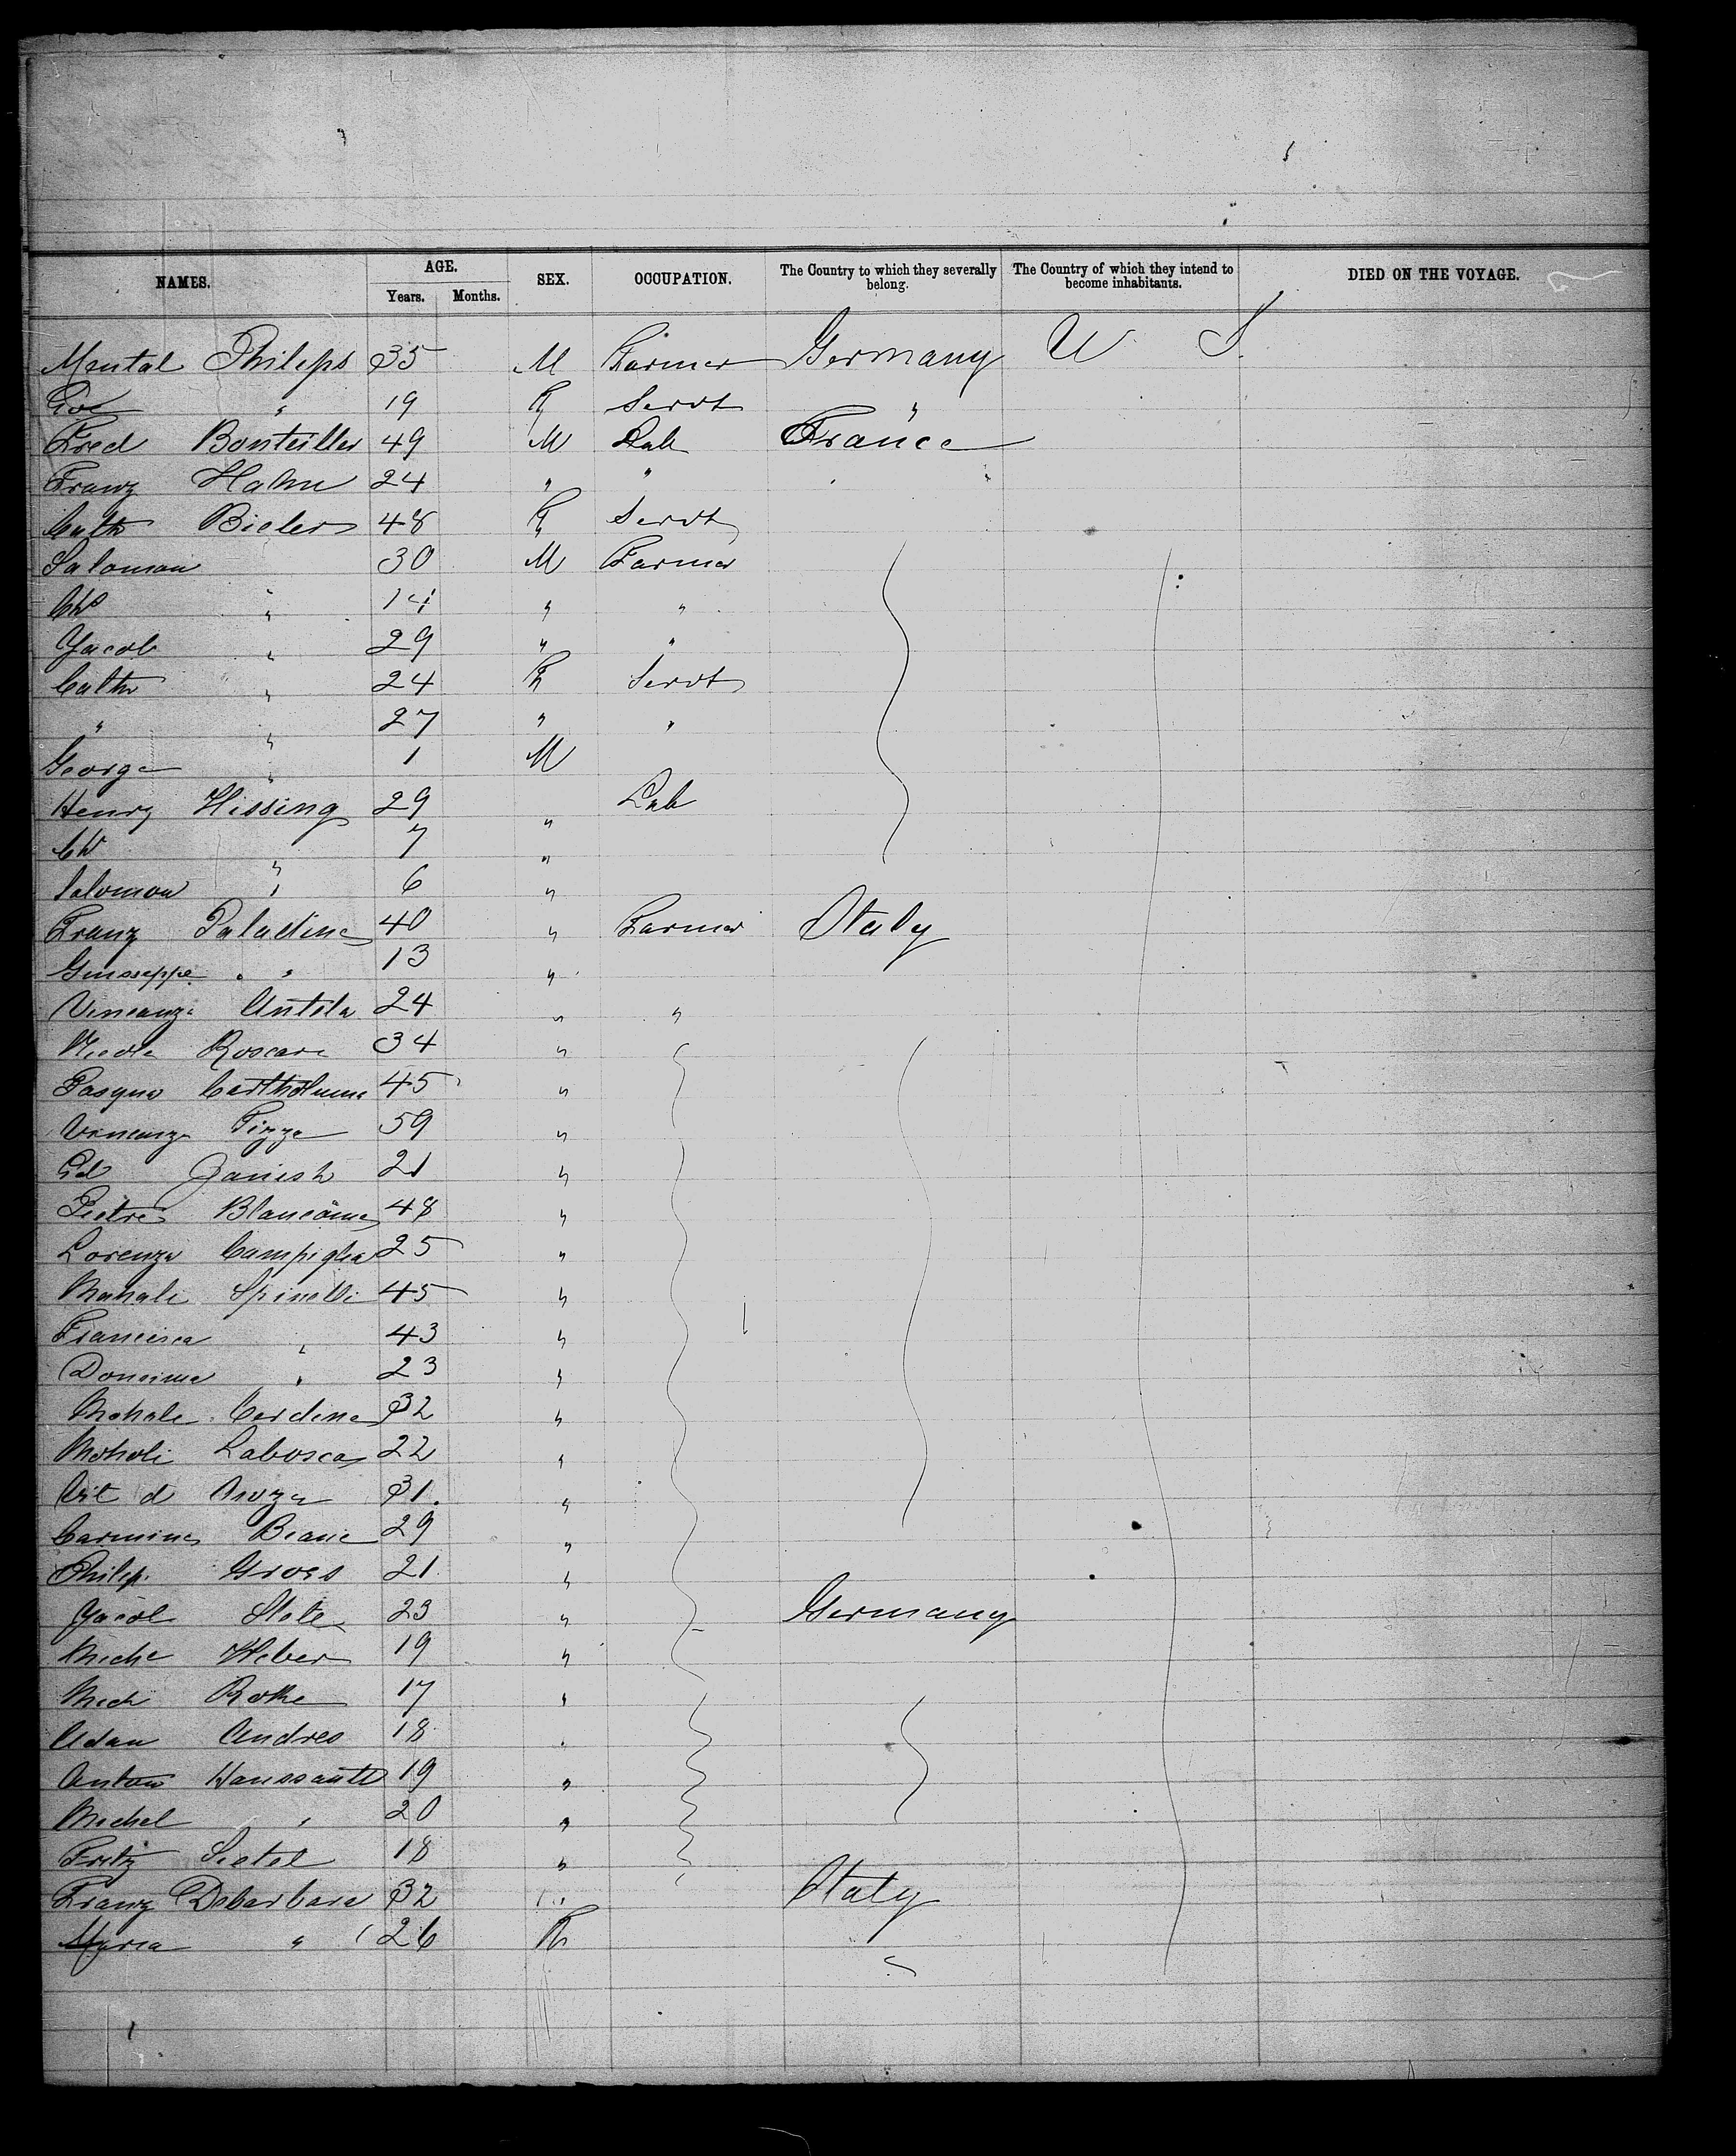 NAMES. AGE. SEX. OCCUPATION. The Country to which they severally belong. The Country of which they intend to become inhabitants. DIED ON THE VOYAGE.
Years. Months.
Mental Phileps 35 M Farmer Germany U S.
" 19 F Servt "
Fred Bonteiller 49 M Lab France
Franz Hahn 24 " "
Cath Bieler 48 F Servt
Salomon 30 M Farmer
Chs " 14 " "
Jacob " 29 " "
Cath " 24 F Servt
" " 27 " "
George " 1 M
Henry Hissing 29 " Lab
Ch " 7 "
Salomon " 6 "
Franz Paladine 40 " Farmer Italy
Giuseppe " 13 "
Vincenz Antola 24 " "
Nicola Roscare 34 "
Pasqua 45 "
Vincenz Pizze 59 "
Ed Janish 21 "
Pietre 48 "
Lorenza Campiglia 25 "
Mahali Spinelli 45 "
Francisca " 43 "
" 23 "
Mahale Cardena 32 "
Moholi Labosca 22 "
Vit d 31. "
Carmine Beane 29 "
Philip. Gross 21. "
Jacob 23 " Germany
Miche Weber 19 "
Mich Rothe 17 "
Adam Andres 18 "
Anton Haussantt 19 "
Michel " 20 "
Fritz Sietel 18 "
Franz Debarbara 32 " Italy
Maria " 26 F "